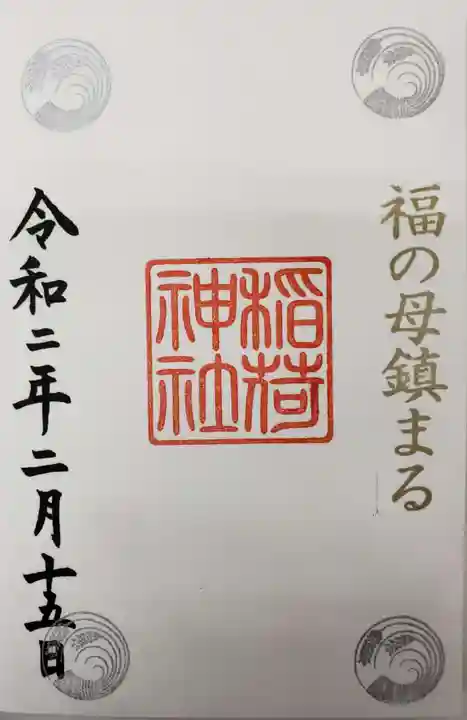 福の母鎮まる
稲荷
神社
令和二年二月十五日